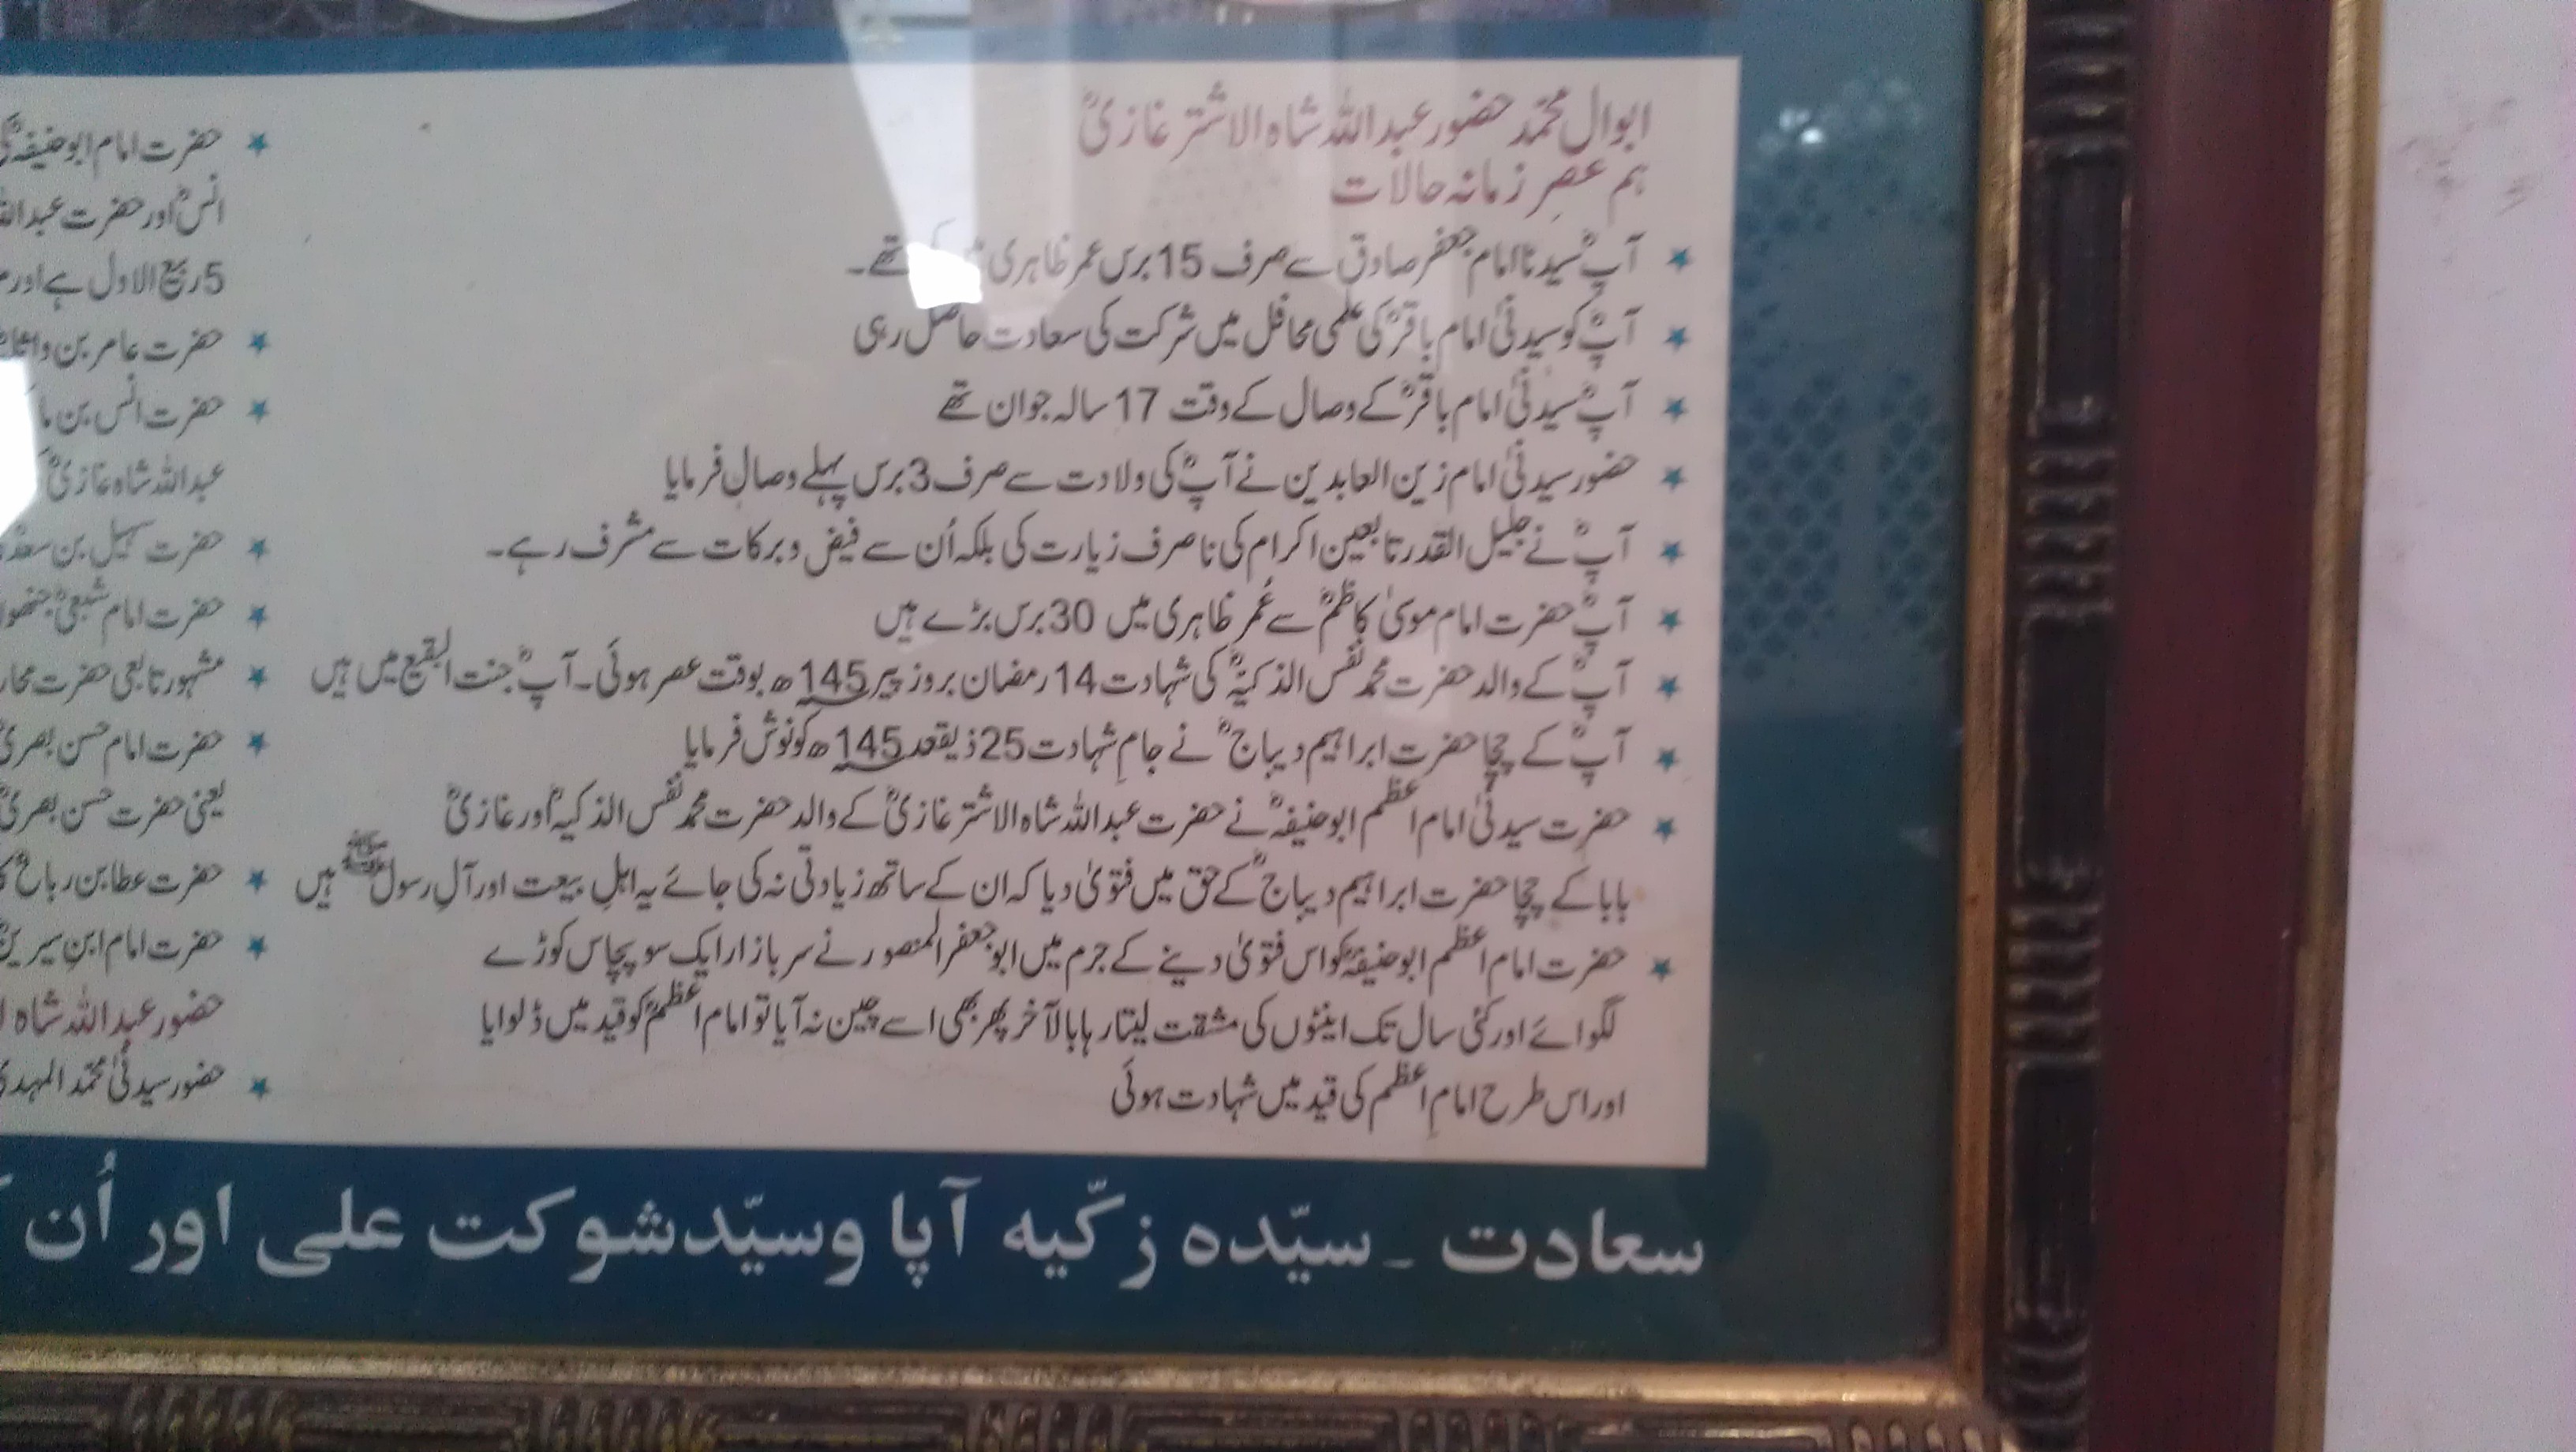 ابوال محمّد حضور عبداللہ شاہ الاشتر غازیؒ
ہم عصرِ زمانہ حالات
آپؒ سیدنا امام جعفر صادق سے صرف 15 برس عمر ظاہری تھے۔
آپؒ کو سیدنیٰ امام باقرؒ کی علمی محافل میں شرکت کی سعادت حاصل رہی
آپؒ سیدنیٰ امام باقرؒ کے وصال کے وقت 17 سالہ جوان تھے
حضور سیدنیٰ امام زین العابدین نے آپؒ کی ولادت سے صرف 3 برس پہلے وصال فرمایا
آپؒ نے جلیل القدر تابعین اکرام کی نا صرف زیارت کی بلکہ اُن سے فیض و برکات سے مشرف رہے۔
آپؒ حضرت امام موسیٰ کاظمؒ سے عُمر ظاہری میں 30 برس بڑے ہیں
آپؒ کے والد حضرت محمد نفس الذکیہؒ کی شہادت 14 رمضان بروز پیر 145ھ بوقت عصر ہوئی۔ آپؒ جنت البقیع میں ہیں
آپؒ کے چچا حضرت ابراہیم دیباجؒ نے جامِ شہادت 25 ذیقعد 145ھ کو نوش فرمایا
حضرت سیدنیٰ امام اعظم ابو حنیفہؒ نے حضرت عبداللہ شاہ الاشتر غازیؒ کے والد حضرت محمد نفس الذکیہؒ اور غازیؒ
بابا کے چچا حضرت ابراہیم دیباجؒ کے حق میں فتویٰ دیا کہ ان کے ساتھ زیادتی نہ کی جائے یہ اہلِ بیعت اور آلِ رسول ﷺ ہیں
حضرت امام اعظم ابو حنیفہؒ کو اس فتویٰ دینے کے جرم میں ابو جعفر المنصور نے سر بازار ایک سو پچاس کوڑے
لگوائے اور کئی سال تک اینٹوں کی مشقت لیتا رہا بالآخر پھر بھی اسے چین نہ آیا تو امام اعظمؒ کو قید میں ڈلوایا
اور اس طرح امامِ اعظم کی قید میں شہادت ہوئی
حضرت امام ابو حنیفہؒ کی
انسؒ اور حضرت عبداللہ
5 ربیع الاول ہے اور
حضرت عامر بن واثلہ
حضرت انس بن ما
عبداللہ شاہ غازیؒ
حضرت سہیل بن سعدؓ
حضرت امام شعبیؒ جنھوں
مشہور تابعی حضرت محار
حضرت امام حسن بصریؒ
یعنی حضرت حسن بصریؒ
حضرت عطا بن رباحؒ
حضرت امام ابنِ سیرینؒ
حضور عبداللہ شاہ ا
حضور سیدنیٰ محمّد المہدی
سعادت ۔ سیّدہ زکّیہ آپا و سیّد شوکت علی اور اُن